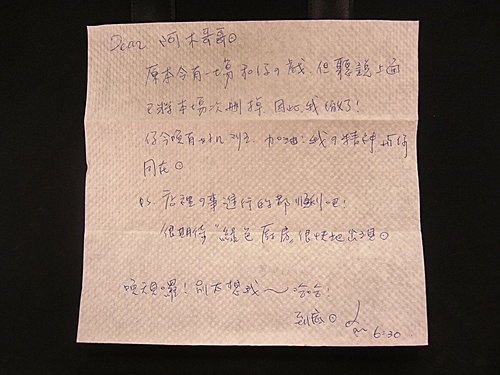 Dear 阿木哥哥。
原本今有一場和仔の戲，但聽說上面
已將本場次刪掉，因此我繳了!
仔今晚有
加油!我の精神与仔
同在。
P.S. 店裡の事進行的都順利吧!
很期待"綠色廚房"很快地出現。
晚頂囉!別太想我～哈哈!
到底。
6.30.